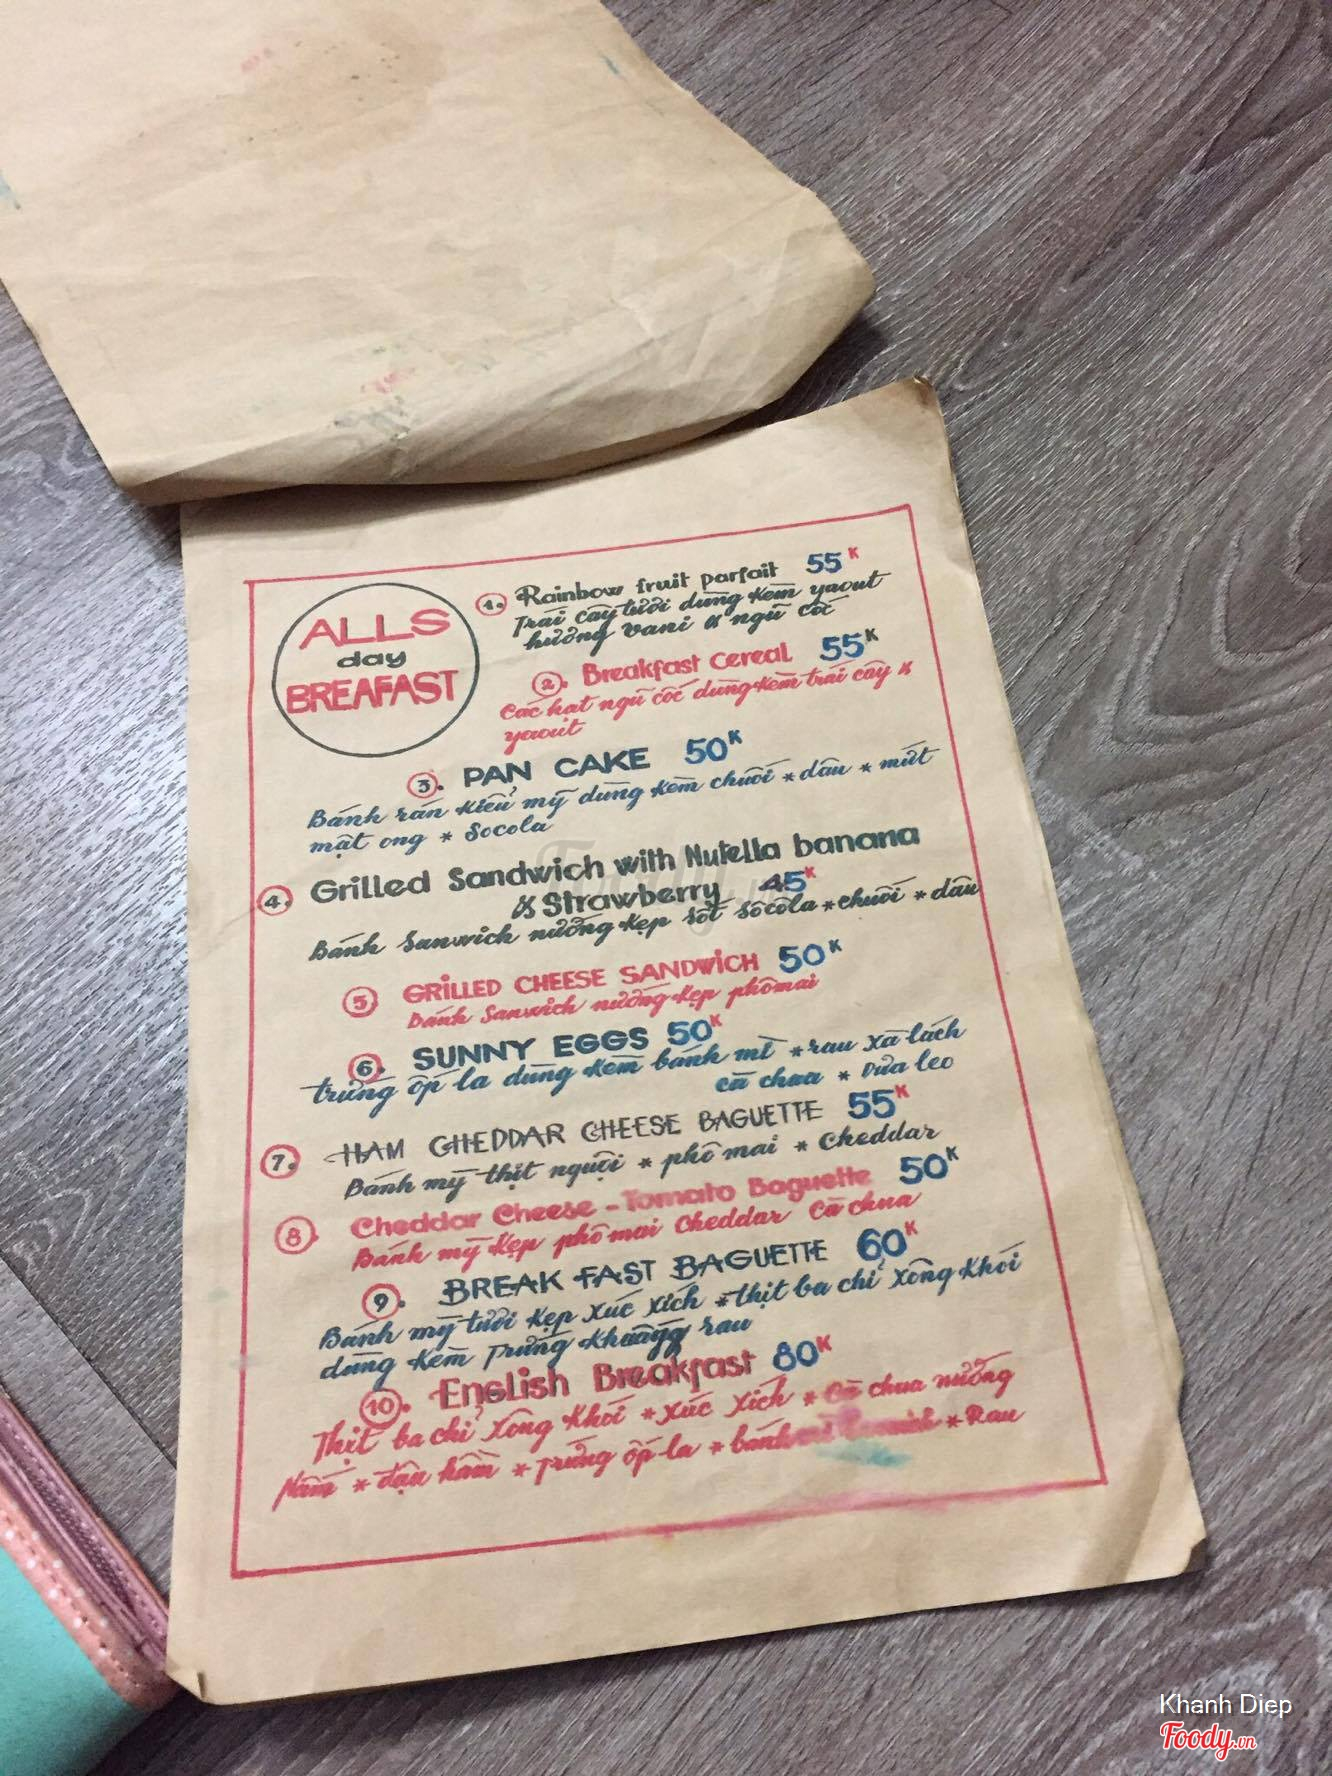 ALLS
day
BREAFAST
1. Rainbow fruit parfait 55K
Trái cây tươi dùng kèm yaout
hương vani & ngũ cốc
2. Breakfast Cereal 55K
Các hạt ngũ cốc dùng kèm trái cây &
yaout
3. PAN CAKE 50K
Bánh rán kiểu mỹ dùng kèm chuối * dâu * mứt
mật ong * Socola
4. Grilled Sandwich with Nutella banana
& Strawberry 45K
Bánh Sanwich nướng kẹp sốt sôcôla * chuối * dâu
5 GRILLED CHEESE SANDWICH 50K
Bánh Sanwich nướng kẹp phômai
6. SUNNY EGGS 50K
trứng ốp la dùng kèm bánh mì * rau xà lách
cà chua * Dưa leo
7. HAM CHEDDAR CHEESE BAGUETTE 55K
Bánh mỳ thịt nguội * phô mai * Cheddar
8. Cheddar Cheese - Tomato Baguette 50K
Bánh mỳ kẹp phô mai Cheddar Cà chua
9. BREAK FAST BAGUETTE 60K
Bánh mỳ tươi kẹp xúc xích * thịt ba chỉ xông khói
dùng kèm Trứng khuấy rau
10. English Breakfast 80K
Thịt ba chỉ xông khói * xúc xích * Cà chua nướng
Nấm * đậu hầm * Trứng ốp la * bánh * Rau
Foody.vn
Khanh Diep
Foody.vn